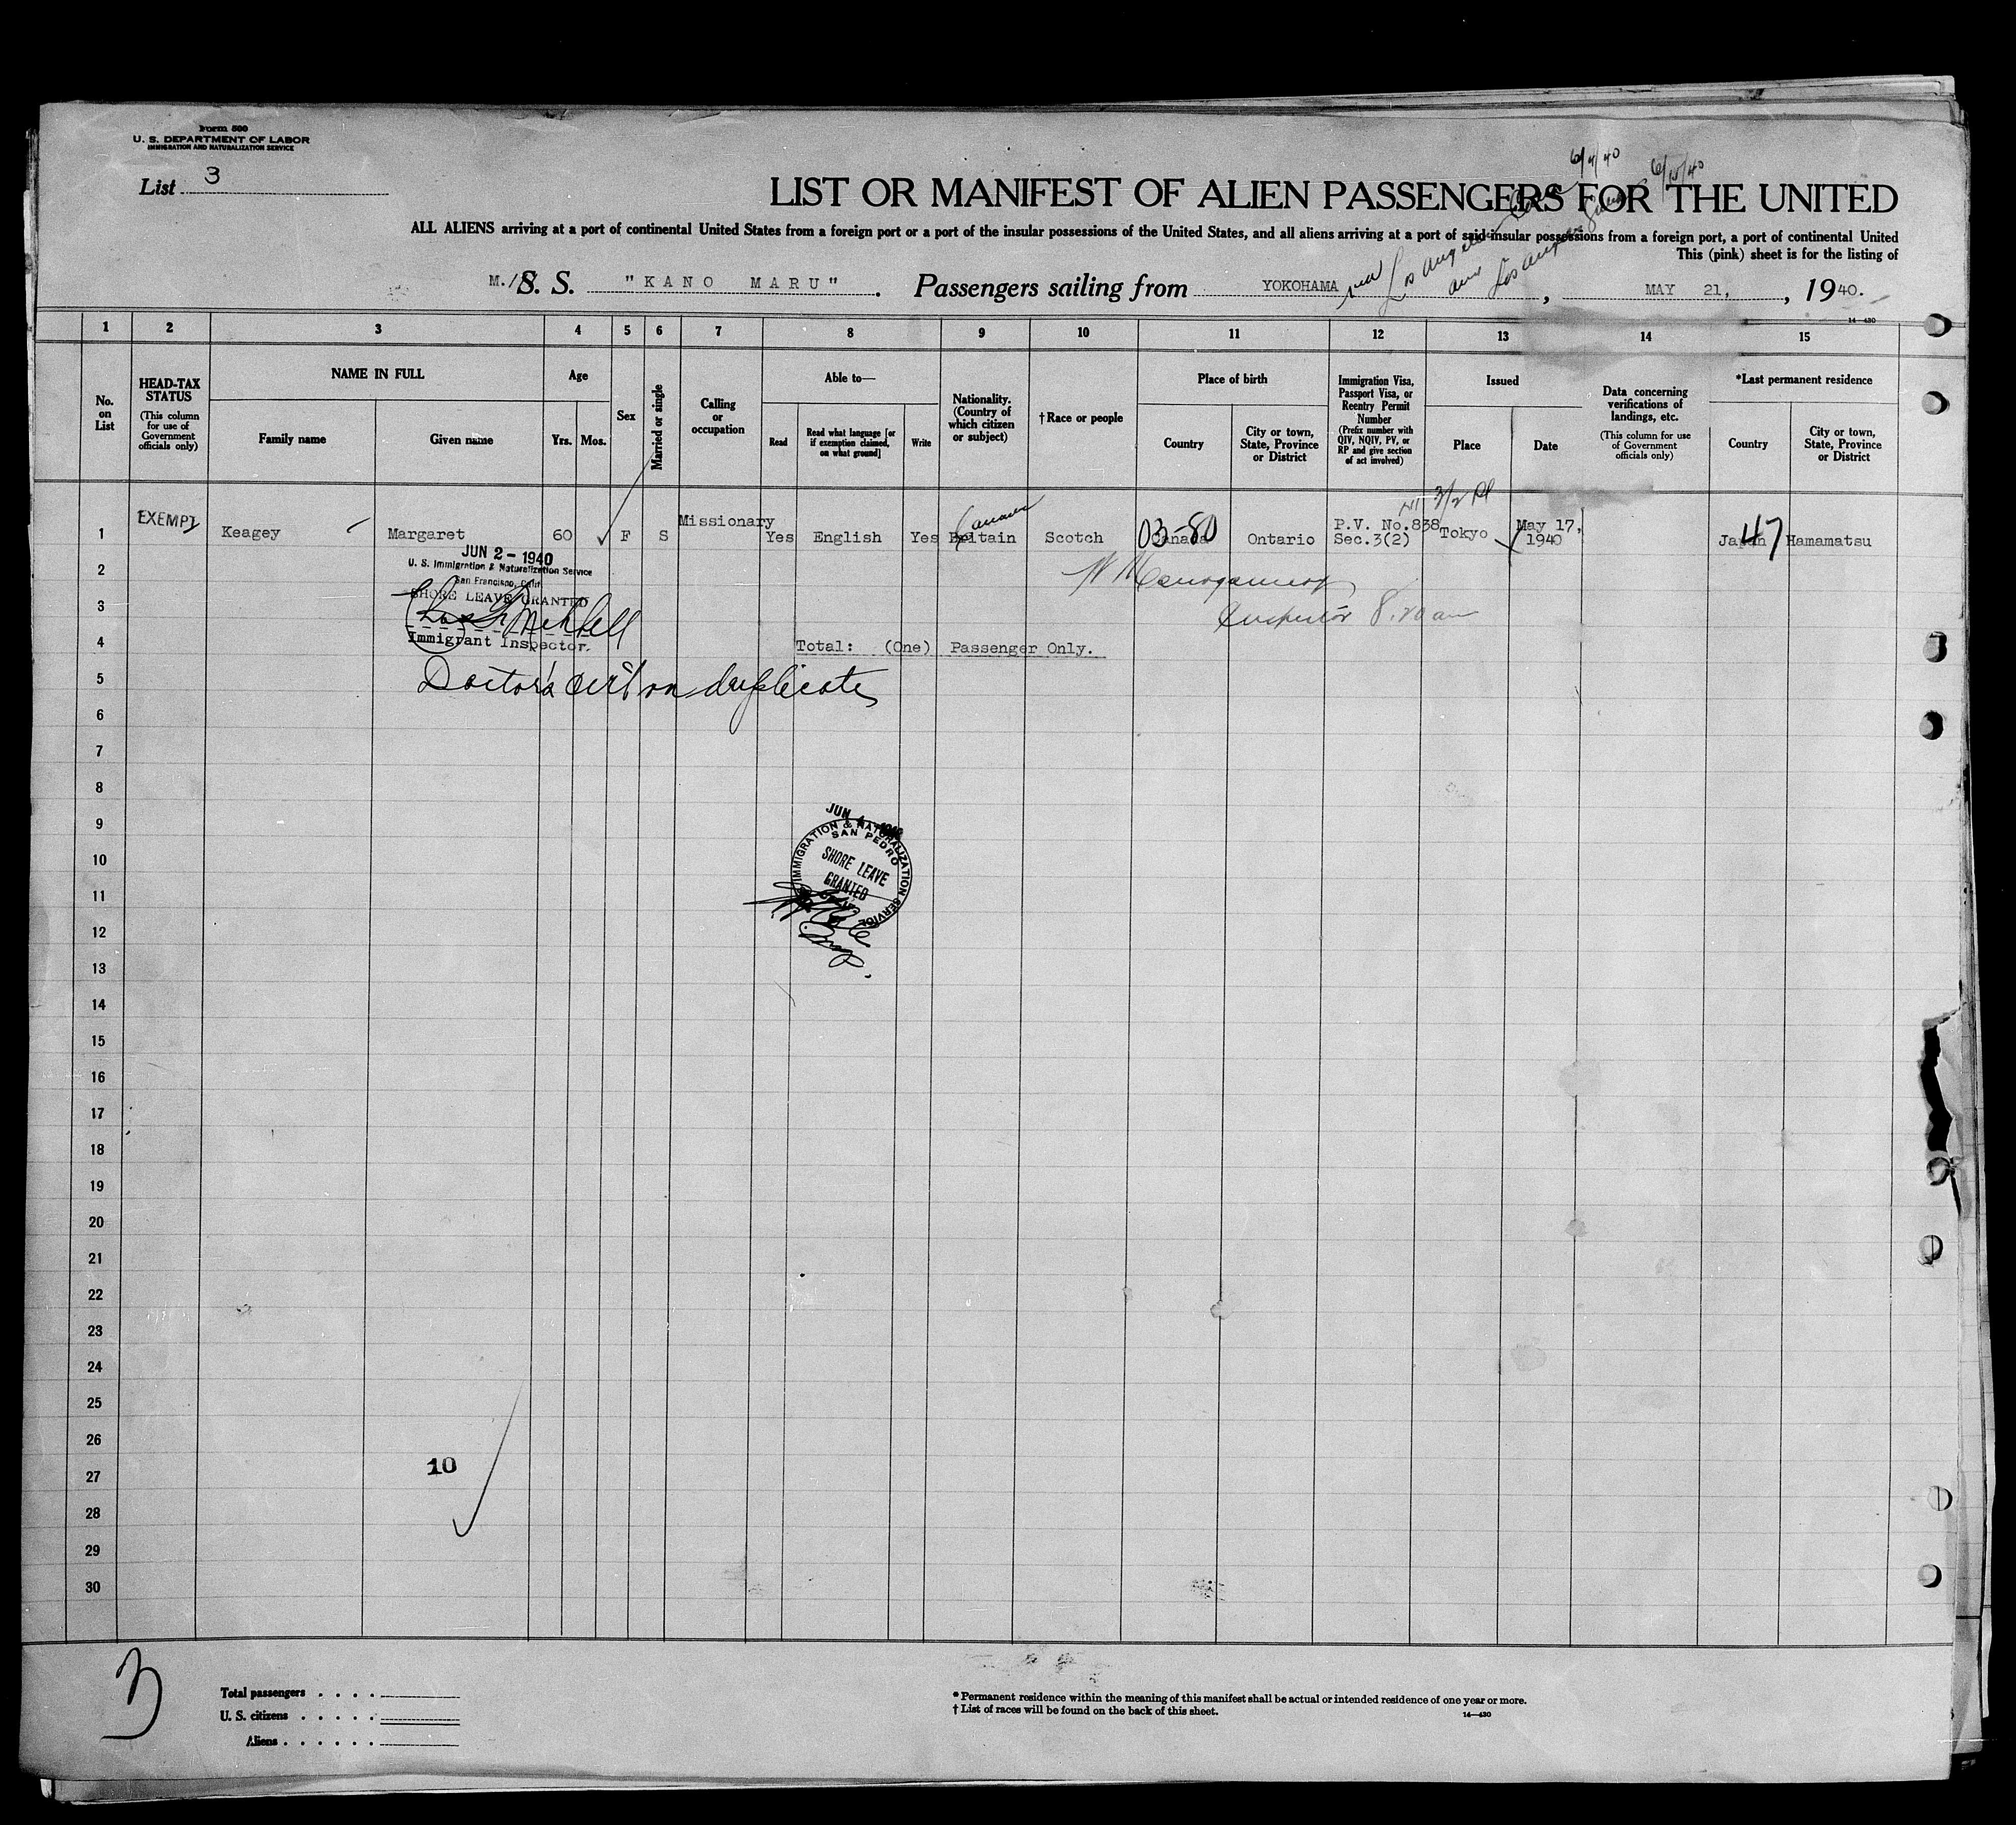 Form 500
U. S. DEPARTMENT OF LABOR
IMMIGRATION AND NATURALIZATION SERVICE
List 3
6/4/40 6/15/40
LIST OR MANIFEST OF ALIEN PASSENGERS FOR THE UNITED
ALL ALIENS arriving at a port of continental United States from a foreign port or a port of the insular possessions of the United States, and all aliens arriving at a port of said insular possessions from a foreign port, a port of continental United
This (pink) sheet is for the listing of
M./S. S. "KANO MARU". Passengers sailing from YOKOHAMA, MAY 21, 1940.
Los Angeles
Los Angeles
14—430
1 2 3 4 5 6 7 8 9 10 11 12 13 14 15
No. on List
HEAD-TAX STATUS
(This column for use of Government officials only)
NAME IN FULL
Family name
Given name
Age
Yrs. Mos.
Sex
Married or single
Calling or occupation
Able to—
Read
Read what language [or if exemption claimed, on what ground]
Write
Nationality. (Country of which citizen or subject)
† Race or people
Place of birth
Country
City or town, State, Province or District
Immigration Visa, Passport Visa, or Reentry Permit Number
(Prefix number with QIV, NQIV, PV, or RP and give section of act involved)
Issued
Place
Date
Data concerning verifications of landings, etc.
(This column for use of Government officials only)
*Last permanent residence
Country
City or town, State, Province or District
3/2
1 EXEMPT Keagey Margaret 60 F S Missionary Yes English Yes Britain Canada Scotch Canada 03-80 Ontario P.V. No.838 Sec.3(2) Tokyo May 17, 1940 Japan 47 Hamamatsu
JUN 2 - 1940
U. S. Immigration & Naturalization Service
San Francisco, Calif.
SHORE LEAVE GRANTED
Immigrant Inspector.
Inspector 8:20 am
Total: (One) Passenger Only.
Doctor's cert on duplicate
2
3
4
5
6
7
8
9
10
11
12
13
14
15
16
17
18
19
20
21
22
23
24
25
26
27
28
29
30
JUN 4 1940
IMMIGRATION & NATURALIZATION SERVICE
SAN PEDRO
SHORE LEAVE
GRANTED
10
3
Total passengers
U. S. citizens
Aliens
* Permanent residence within the meaning of this manifest shall be actual or intended residence of one year or more.
† List of races will be found on the back of this sheet.
14—430